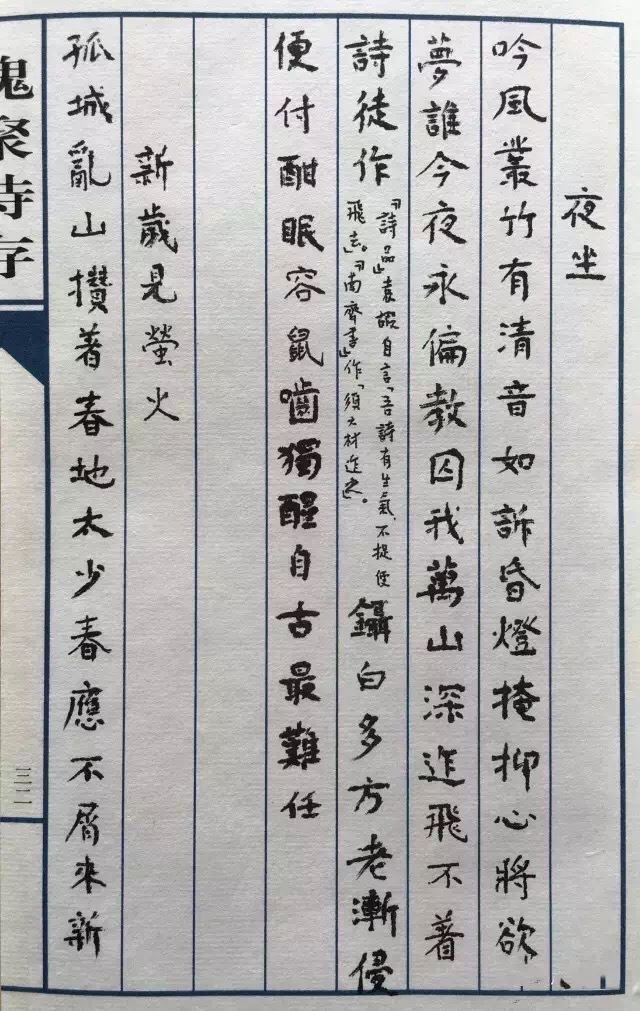 夜坐
吟風叢竹有清音如訴昏燈掩抑心將欲
夢誰今夜永偏教囚我萬山深迮飛不着
詩徒作
『詩品』袁嘏自言「吾詩有生氣,不捉便
飛去。」『南齊書』作「須大材迮之」。
鑷白多方老漸侵
便付酣眠容鼠嚙獨醒自古最難任
新歲見螢火
孤城亂山攢著春地太少春應不屑來新
槐聚詩存
三二